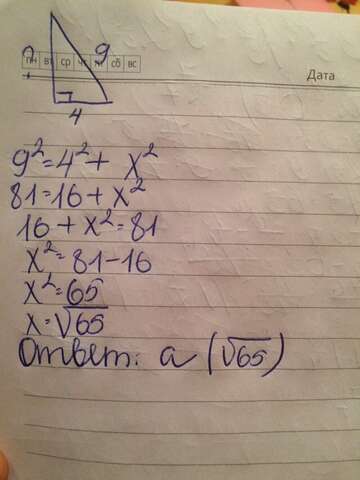 ? 9
пн вт ср чт пт сб вс
Дата
4
9²=4²+ x²
81=16+x²
16+x²=81
x²=81-16
x²=65
x=√65
Ответ: a (√65)